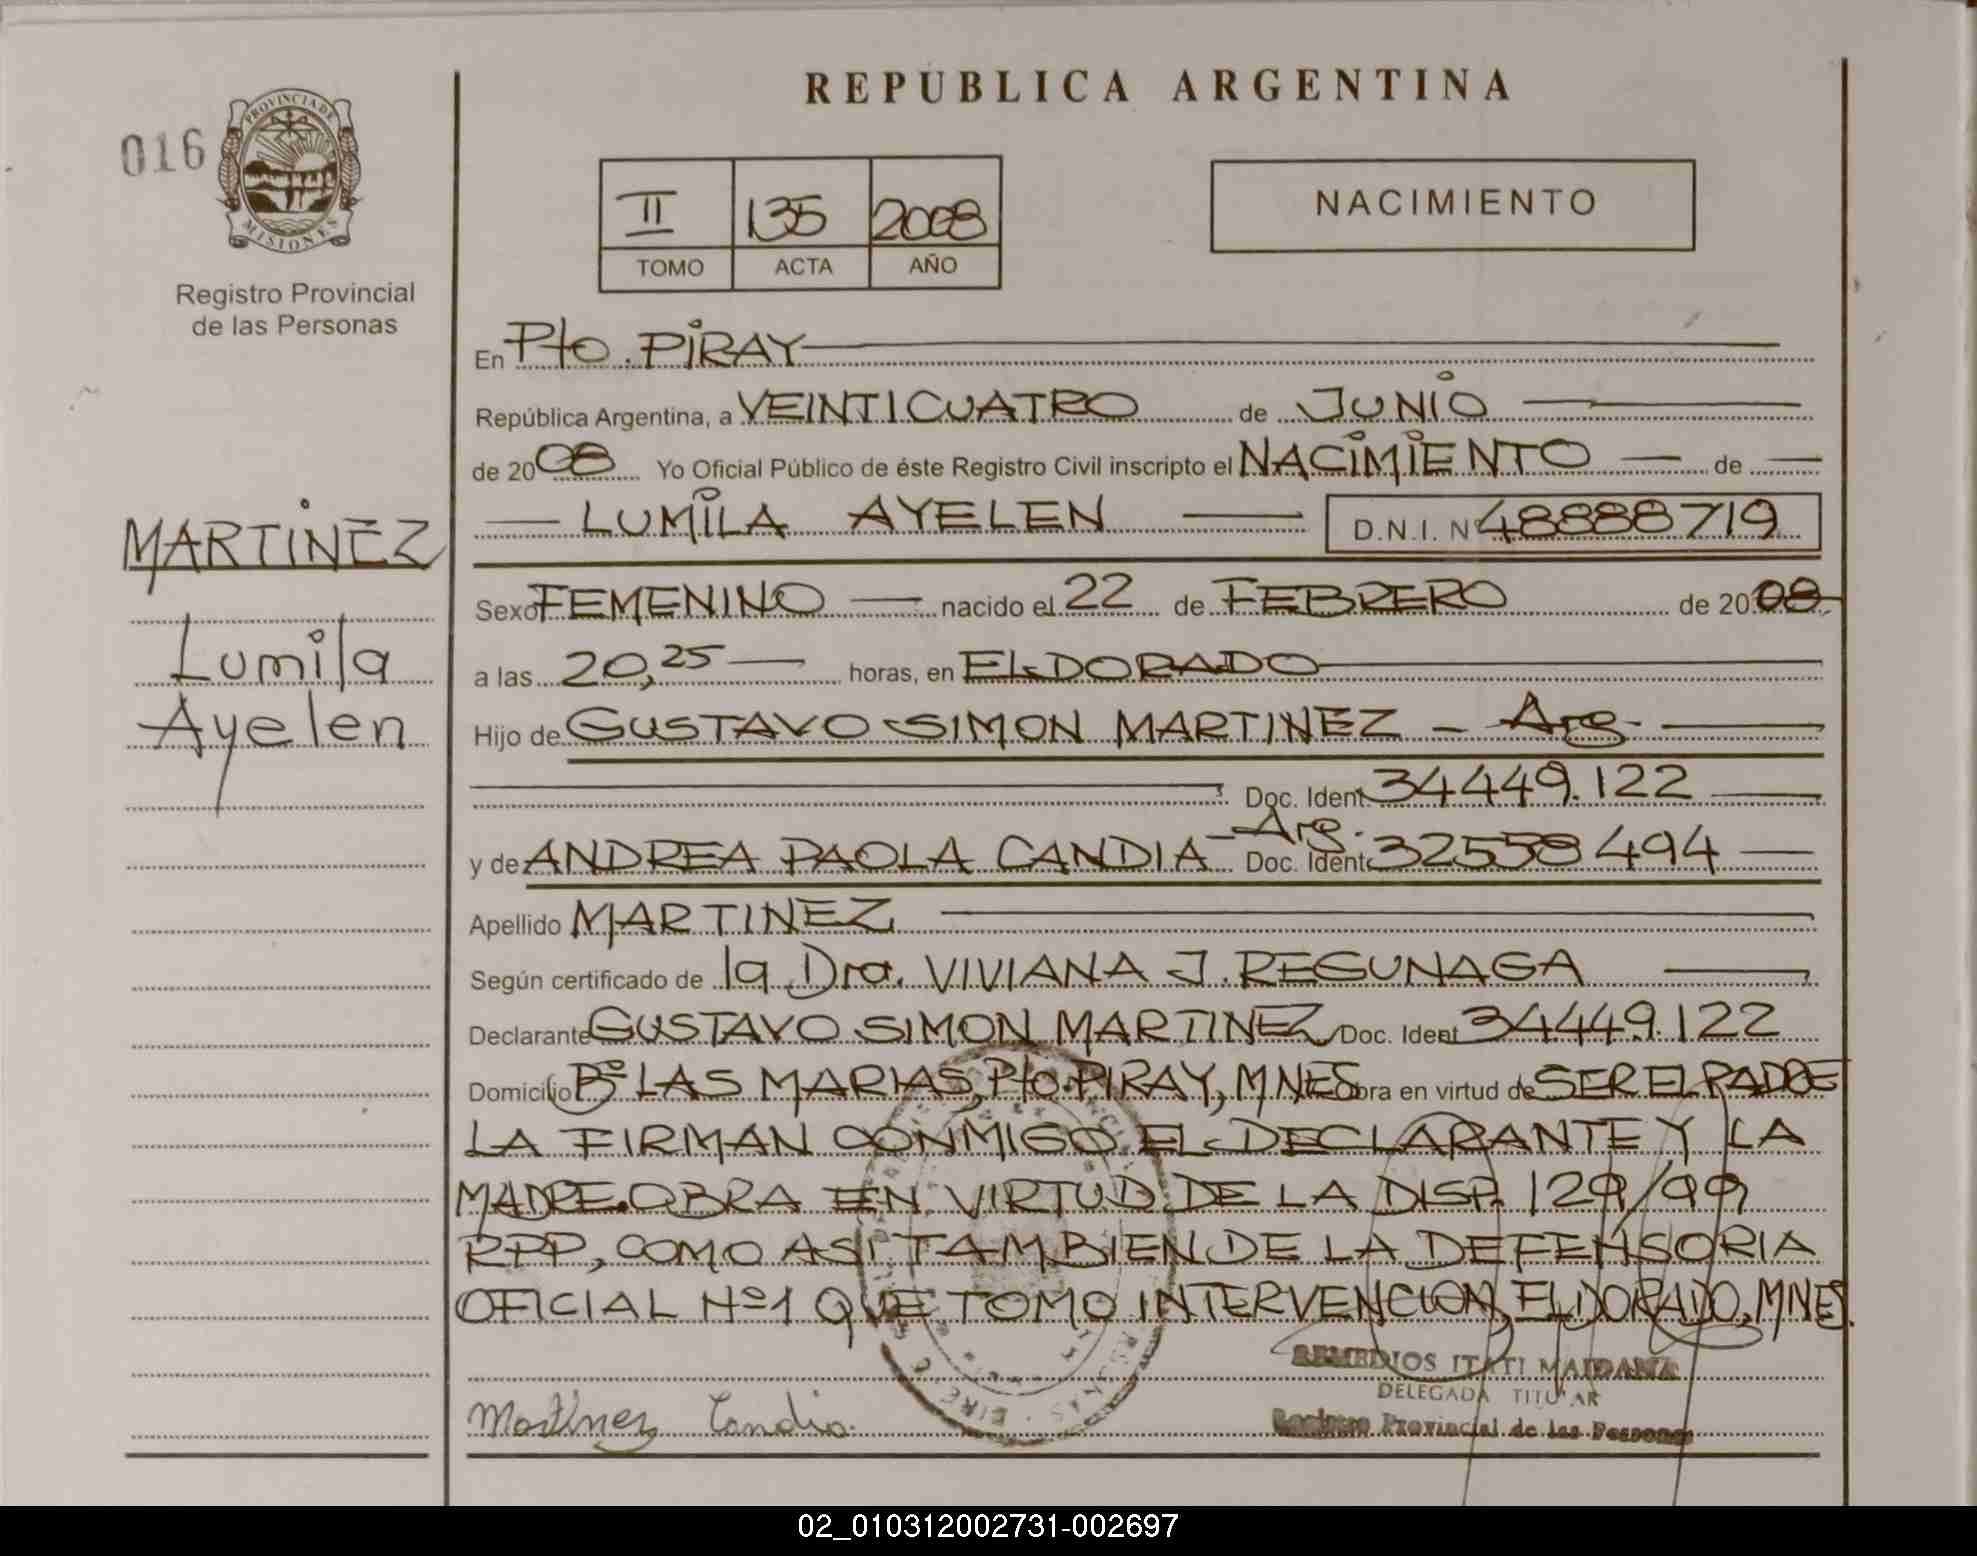 REPUBLICA ARGENTINA
016
PROVINCIA DE
MISIONES
Registro Provincial
de las Personas
II 135 2008
TOMO ACTA AÑO
NACIMIENTO
En Pto. PIRAY
República Argentina, a VEINTICUATRO de JUNIO
de 2008 Yo Oficial Público de éste Registro Civil inscripto el NACIMIENTO de
LUMILA AYELEN D.N.I. Nº 48888719
MARTINEZ
Lumila
Ayelen
Sexo FEMENINO nacido el 22 de FEBRERO de 2008
a las 20,25 horas, en ELDORADO
Hijo de GUSTAVO SIMON MARTINEZ - Arg.
Doc. Ident 34449.122
y de ANDREA PAOLA CANDIA - Arg. Doc. Ident 32558494
Apellido MARTINEZ
Según certificado de la Dra. VIVIANA J. REGUNAGA
Declarante GUSTAVO SIMON MARTINEZ Doc. Ident 34449.122
Domicilio Bº LAS MARIAS, Pto. PIRAY, MNES Obra en virtud de SER EL PADRE
LA FIRMAN CONMIGO EL DECLARANTE Y LA
MADRE. OBRA EN VIRTUD DE LA DISP. 129/99
RPP, COMO ASI TAMBIEN DE LA DEFENSORIA
OFICIAL Nº1 QUE TOMO INTERVENCION, ELDORADO, MNES.
REMEDIOS ITATI MAIDANA
DELEGADA TITULAR
Registro Provincial de las Personas
Martinez Candia
02_010312002731-002697